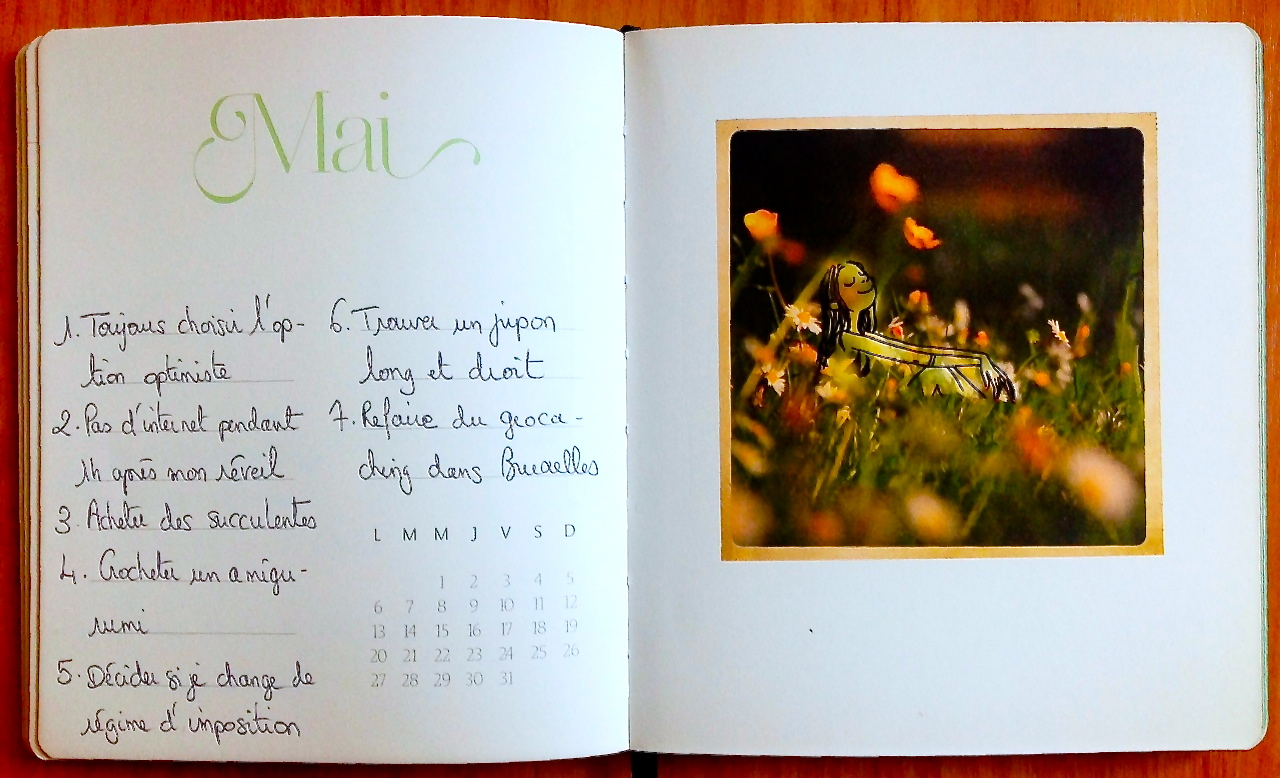 Mai
1. Toujours choisir l'op-
tion optimiste
2. Pas d'internet pendant
1h après mon réveil
3. Acheter des succulentes
4. Crocheter un amigu-
rumi
5. Décider si je change de
régime d'imposition
6. Trouver un jupon
long et droit
7. Refaire du geoca-
ching dans Bruxelles
L M M J V S D
1 2 3 4 5
6 7 8 9 10 11 12
13 14 15 16 17 18 19
20 21 22 23 24 25 26
27 28 29 30 31